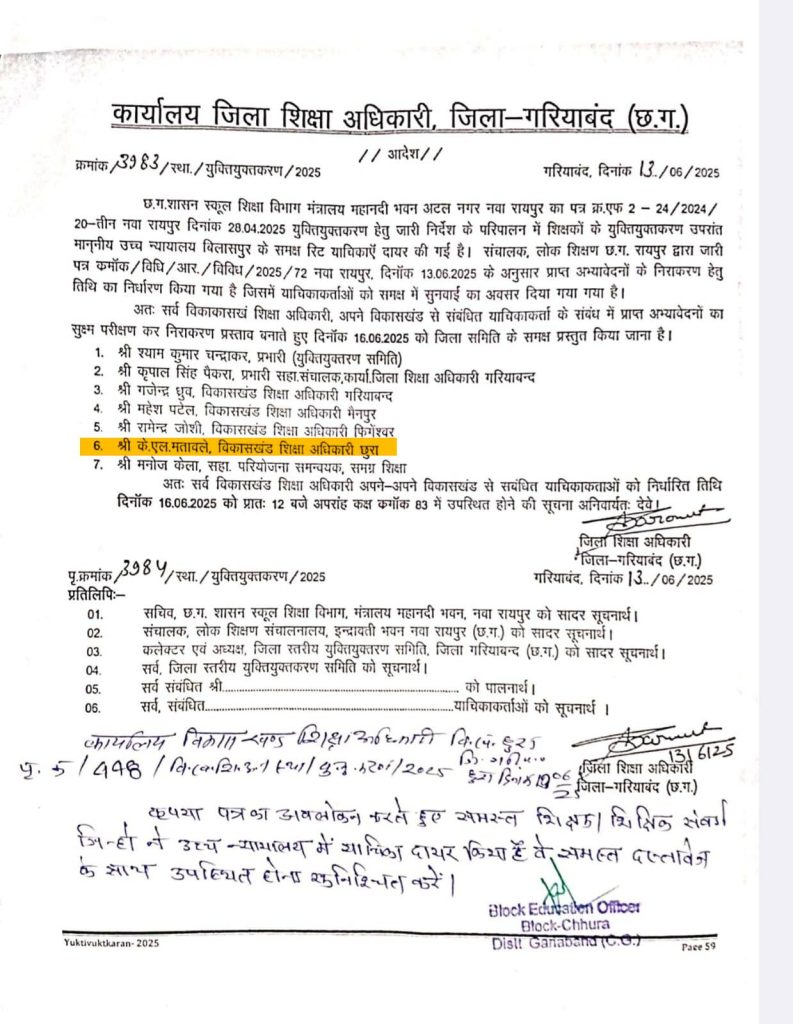 कार्यालय जिला शिक्षा अधिकारी, जिला–गरियाबंद (छ.ग.)
//आदेश//
क्रमांक/3983/स्था./युक्तियुक्तकरण/2025 गरियाबंद, दिनांक 13./06/2025
छ.ग.शासन स्कूल शिक्षा विभाग मंत्रालय महानदी भवन अटल नगर नवा रायपुर का पत्र क्र.एफ 2 – 24/2024/
20–तीन नवा रायपुर दिनांक 28.04.2025 युक्तियुक्तकरण हेतु जारी निर्देश के परिपालन में शिक्षकों के युक्तियुक्तकरण उपरांत
माननीय उच्च न्यायालय विलासपुर के समक्ष रिट याचिकाऐं दायर की गई है। संचालक, लोक शिक्षण छ.ग. रायपुर द्वारा जारी
पत्र कमॉक/विधि/आर./विविध/2025/72 नवा रायपुर, दिनॉक 13.06.2025 के अनुसार प्राप्त अभ्यावेदनों के निराकरण हेतु
तिथि का निर्धारण किया गया है जिसमें याचिकाकर्ताओं को समक्ष में सुनवाई का अवसर दिया गया गया है।
अतः सर्व विकाकासखं शिक्षा अधिकारी, अपने विकासखंड से संबंधित याचिकाकर्ता के संबंध में प्राप्त अभ्यावेदनों का
सुक्ष्म परीक्षण कर निराकरण प्रस्ताव बनाते हुए दिनॉक 16.06.2025 को जिला समिति के समक्ष प्रस्तुत किया जाना है।
1. श्री श्याम कुमार चन्द्राकर, प्रभारी (युक्तियुक्तरण समिति)
2. श्री कृपाल सिंह पैकरा, प्रभारी सहा.संचालक,कार्या.जिला शिक्षा अधिकारी गरियाबन्द
3. श्री गजेन्द्र ध्रुव, विकासखंड शिक्षा अधिकारी गरियाबन्द
4. श्री महेश पटेल, विकासखंड शिक्षा अधिकारी मैनपुर
5. श्री रामेन्द्र जोशी, विकासखंड शिक्षा अधिकारी फिंगेश्वर
6. श्री के.एल.मतावले, विकासखंड शिक्षा अधिकारी छुरा
7. श्री मनोज केला, सहा. परियोजना समन्वयक, समग्र शिक्षा
अतः सर्व विकासखंड शिक्षा अधिकारी अपने–अपने विकासखंड से सबंधित याचिकाकताओं को निर्धारित तिथि
दिनॉक 16.06.2025 को प्रातः 12 बजे अपरांह कक्ष कमॉक 83 में उपस्थित होने की सूचना अनिवार्यतः देवे।
जिला शिक्षा अधिकारी
जिला–गरियाबंद (छ.ग.)
पृ.क्रमांक/3984/स्था./युक्तियुक्तकरण/2025 गरियाबंद, दिनांक 13../06/2025
प्रतिलिपिः–
01. सचिव, छ.ग. शासन स्कूल शिक्षा विभाग, मंत्रालय महानदी भवन, नवा रायपुर को सादर सूचनार्थ।
02. संचालक, लोक शिक्षण संचालनालय, इन्द्रावती भवन नवा रायपुर (छ.ग.) को सादर सूचनार्थ।
03. कलेक्टर एवं अध्यक्ष, जिला स्तरीय युक्तियुक्तरण समिति, जिला गरियाबन्द (छ.ग.) को सादर सूचनार्थ।
04. सर्व, जिला स्तरीय युक्तियुक्तकरण समिति को सूचनार्थ।
05. सर्व संबंधित श्री............................................................ को पालनार्थ।
06. सर्व, संबंधित................................................................याचिकाकर्ताओं को सूचनार्थ ।
कार्यालय विकास खण्ड शिक्षा अधिकारी वि.खं. छुरा
13/6/25
जिला शिक्षा अधिकारी
जिला–गरियाबंद (छ.ग.)
पृ. क्र/448/वि.ख.शि.अ/स्था/युयुकरण/2025 छुरा दिनांक
कृपया पत्र का अवलोकन करते हुए समस्त शिक्षक/शिक्षक संवर्ग
जिन्होंने उच्च न्यायालय में याचिका दायर किया है वे समस्त दस्तावेज
के साथ उपस्थित होना सुनिश्चित करें।
Block Education Officer
Block-Chhura
Distt Gariaband (C.G.)
Yuktiyuktkaran- 2025 Page 59